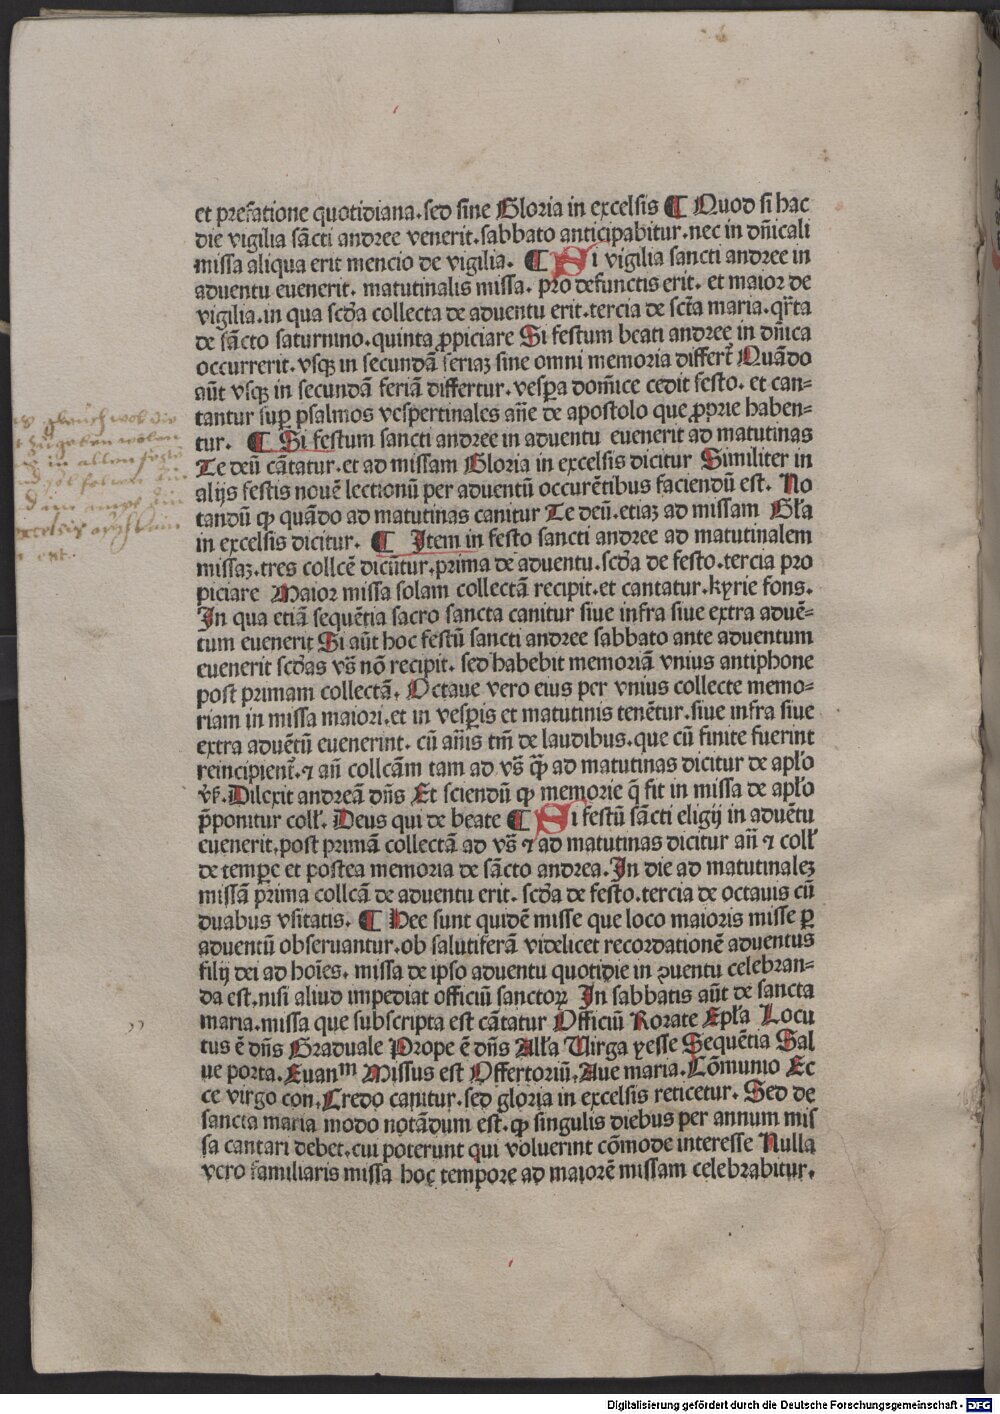 et prefatione quotidiana. sed sine Gloria in excelsis ¶ Quod si hac
die vigilia sācti andree venerit. sabbato anticipabitur. nec in dn̄icali
missa aliqua erit mencio de vigilia. ¶ Si vigilia sancti andree in
aduentu euenerit. matutinalis missa. pro defunctis erit. et maior de
vigilia. in qua scd̄a collecta de aduentu erit. tercia de scta maria. qr̄ta
de sācto saturnino. quinta ꝓpiciare Si festum beati andree in dn̄ica
occurrerit. vsqꝫ in secundā feriaꝫ sine omni memoria differt᷑ Quādo
aūt vsqꝫ in secundā feriā differtur. vesꝑa domīce cedit festo. et can-
tantur suꝑ psalmos vespertinales an̄e de apostolo que ꝓprie haben-
tur. ¶ Si festum sancti andree in aduentu euenerit ad matutinas
Te deū cātatur. et ad missam Gloria in excelsis dicitur Similiter in
alijs festis nouē lectionū per aduentū occurētibus faciendū est. No
tandū ꝙ quādo ad matutinas canitur Te deū. etiaꝫ ad missam Gl̄a
in excelsis dicitur. ¶ Item in festo sancti andree ad matutinalem
missaꝫ. tres collcē dicūtur. prima de aduentu. scd̄a de festo. tercia pro
piciare Maior missa solam collectā recipit. et cantatur. kyrie fons.
In qua etiā sequētia sacro sancta canitur siue infra siue extra aduē-
tum euenerit Si aūt hoc festū sancti andree sabbato ante aduentum
euenerit scd̄as vs̄ nō recipit. sed habebit memoriā vnius antiphone
post primam collectā. Octaue vero eius per vnius collecte memo-
riam in missa maiori. et in vesꝑis et matutinis tenētur. siue infra siue
extra aduētū euenerint. cū an̄is tm̄ de laudibus. que cū finite fuerint
reincipient᷑. ⁊ an̄ collcām tam ad vs̄ q̄ꝫ ad matutinas dicitur de apl̄o
Dilexit andreā dn̄s Et sciendū ꝙ memorie q̄ fit in missa de apl̄o
p̄ponitur coll̄. Deus qui de beate ¶ Si festū sācti eligij in aduētu
euenerit. post primā collectā ad vs̄ ⁊ ad matutinas dicitur an̄ ⁊ coll̄
de tempe et postea memoria de sācto andrea. In die ad matutinaleꝫ
missā prima collcā de aduentu erit. scd̄a de festo. tercia de octauis cū
duabus vsitatis. ¶ Hee sunt quidē misse que loco maioris misse ꝑ
aduentū obseruantur. ob salutiferā videlicet recordationē aduentus
filij dei ad hoīes. missa de ipso aduentu quotidie in ꝯuentu celebran-
da est. nisi aliud impediat officiū sanctoꝝ In sabbatis aūt de sancta
maria. missa que subscripta est cātatur Officiū Rorate Epl̄a Locu
tus ē dn̄s Graduale Prope ē dn̄s All̄a Virga yesse Sequētia Sal
ue porta. Euanᵐ Missus est Offertoriū. Aue maria. Cōmunio Ec
ce virgo con. Credo canitur. sed gloria in excelsis reticetur. Sed de
sancta maria modo notādum est. ꝙ singulis diebus per annum mis
sa cantari debet. cui poterunt qui voluerint cōmode interesse Nulla
vero familiaris missa hoc tempore ad maiorē missam celebrabitur.
Digitalisierung gefördert durch die Deutsche Forschungsgemeinschaft - DFG